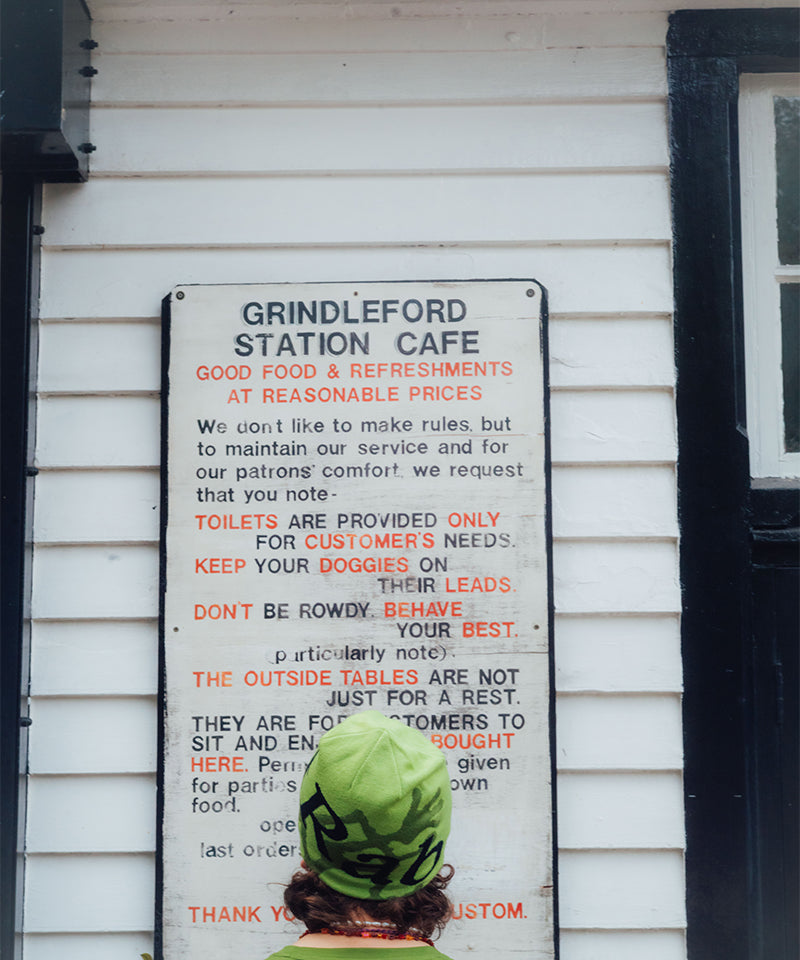 GRINDLEFORD
STATION CAFE
GOOD FOOD & REFRESHMENTS
AT REASONABLE PRICES
We don't like to make rules, but
to maintain our service and for
our patrons' comfort, we request
that you note-
TOILETS ARE PROVIDED ONLY
FOR CUSTOMER'S NEEDS.
KEEP YOUR DOGGIES ON
THEIR LEADS.
DON'T BE ROWDY. BEHAVE
YOUR BEST.
(particularly note).
THE OUTSIDE TABLES ARE NOT
JUST FOR A REST.
THEY ARE FOR TO
SIT AND BOUGHT
HERE. given
for parties own
food.
last orders
THANK
Rab